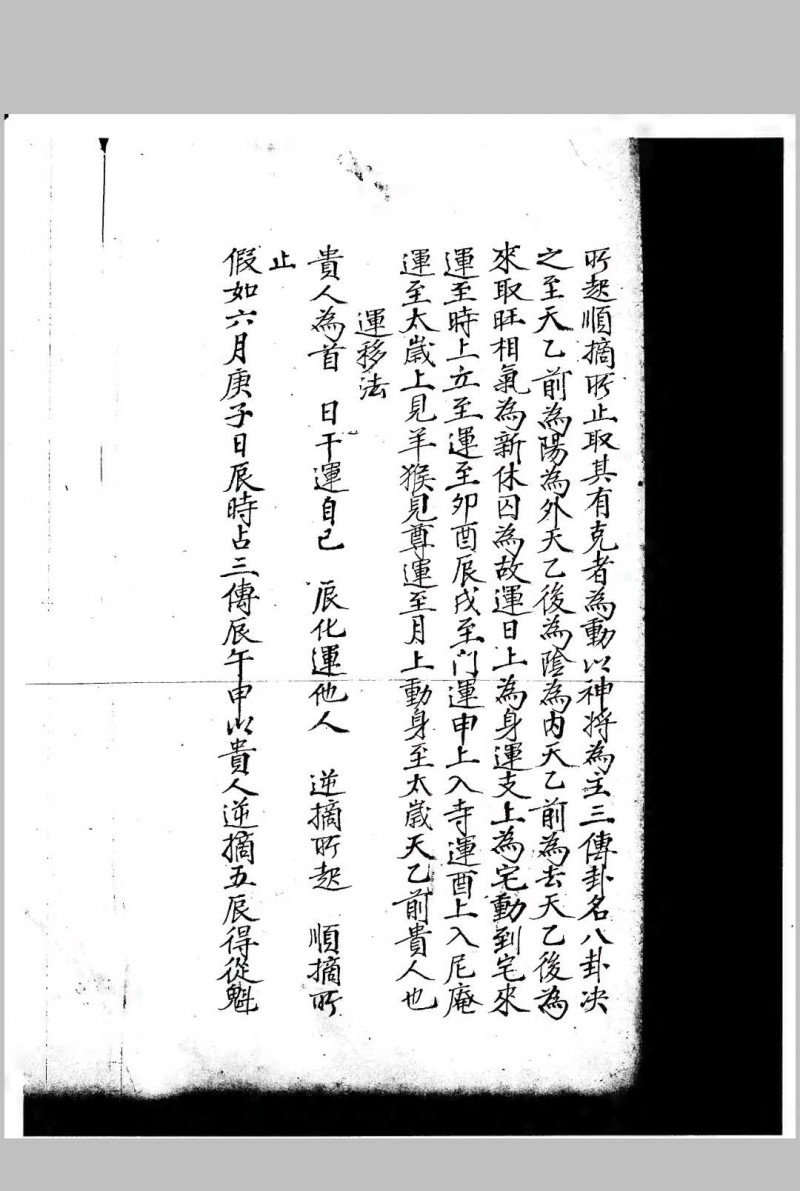 所起順摘所止取其有克者為動以神將為主三傳卦名八卦决
之至天乙前為陽為外天乙後為陰為内天乙前為去天乙後為
來取旺相氣為新休囚為故運日上為身運支上為宅動到宅來
運至時上立至運至卯酉辰戌至门運申上入寺運酉上入尼庵
運至太歲上見羊猴見尊運至月上動身至太歲天乙前貴人也
運移法
貴人為首 日干運自己 辰化運他人 逆摘所起 順摘所
止
假如六月庚子日辰時占三傳辰午申以貴人逆摘五辰得從魁